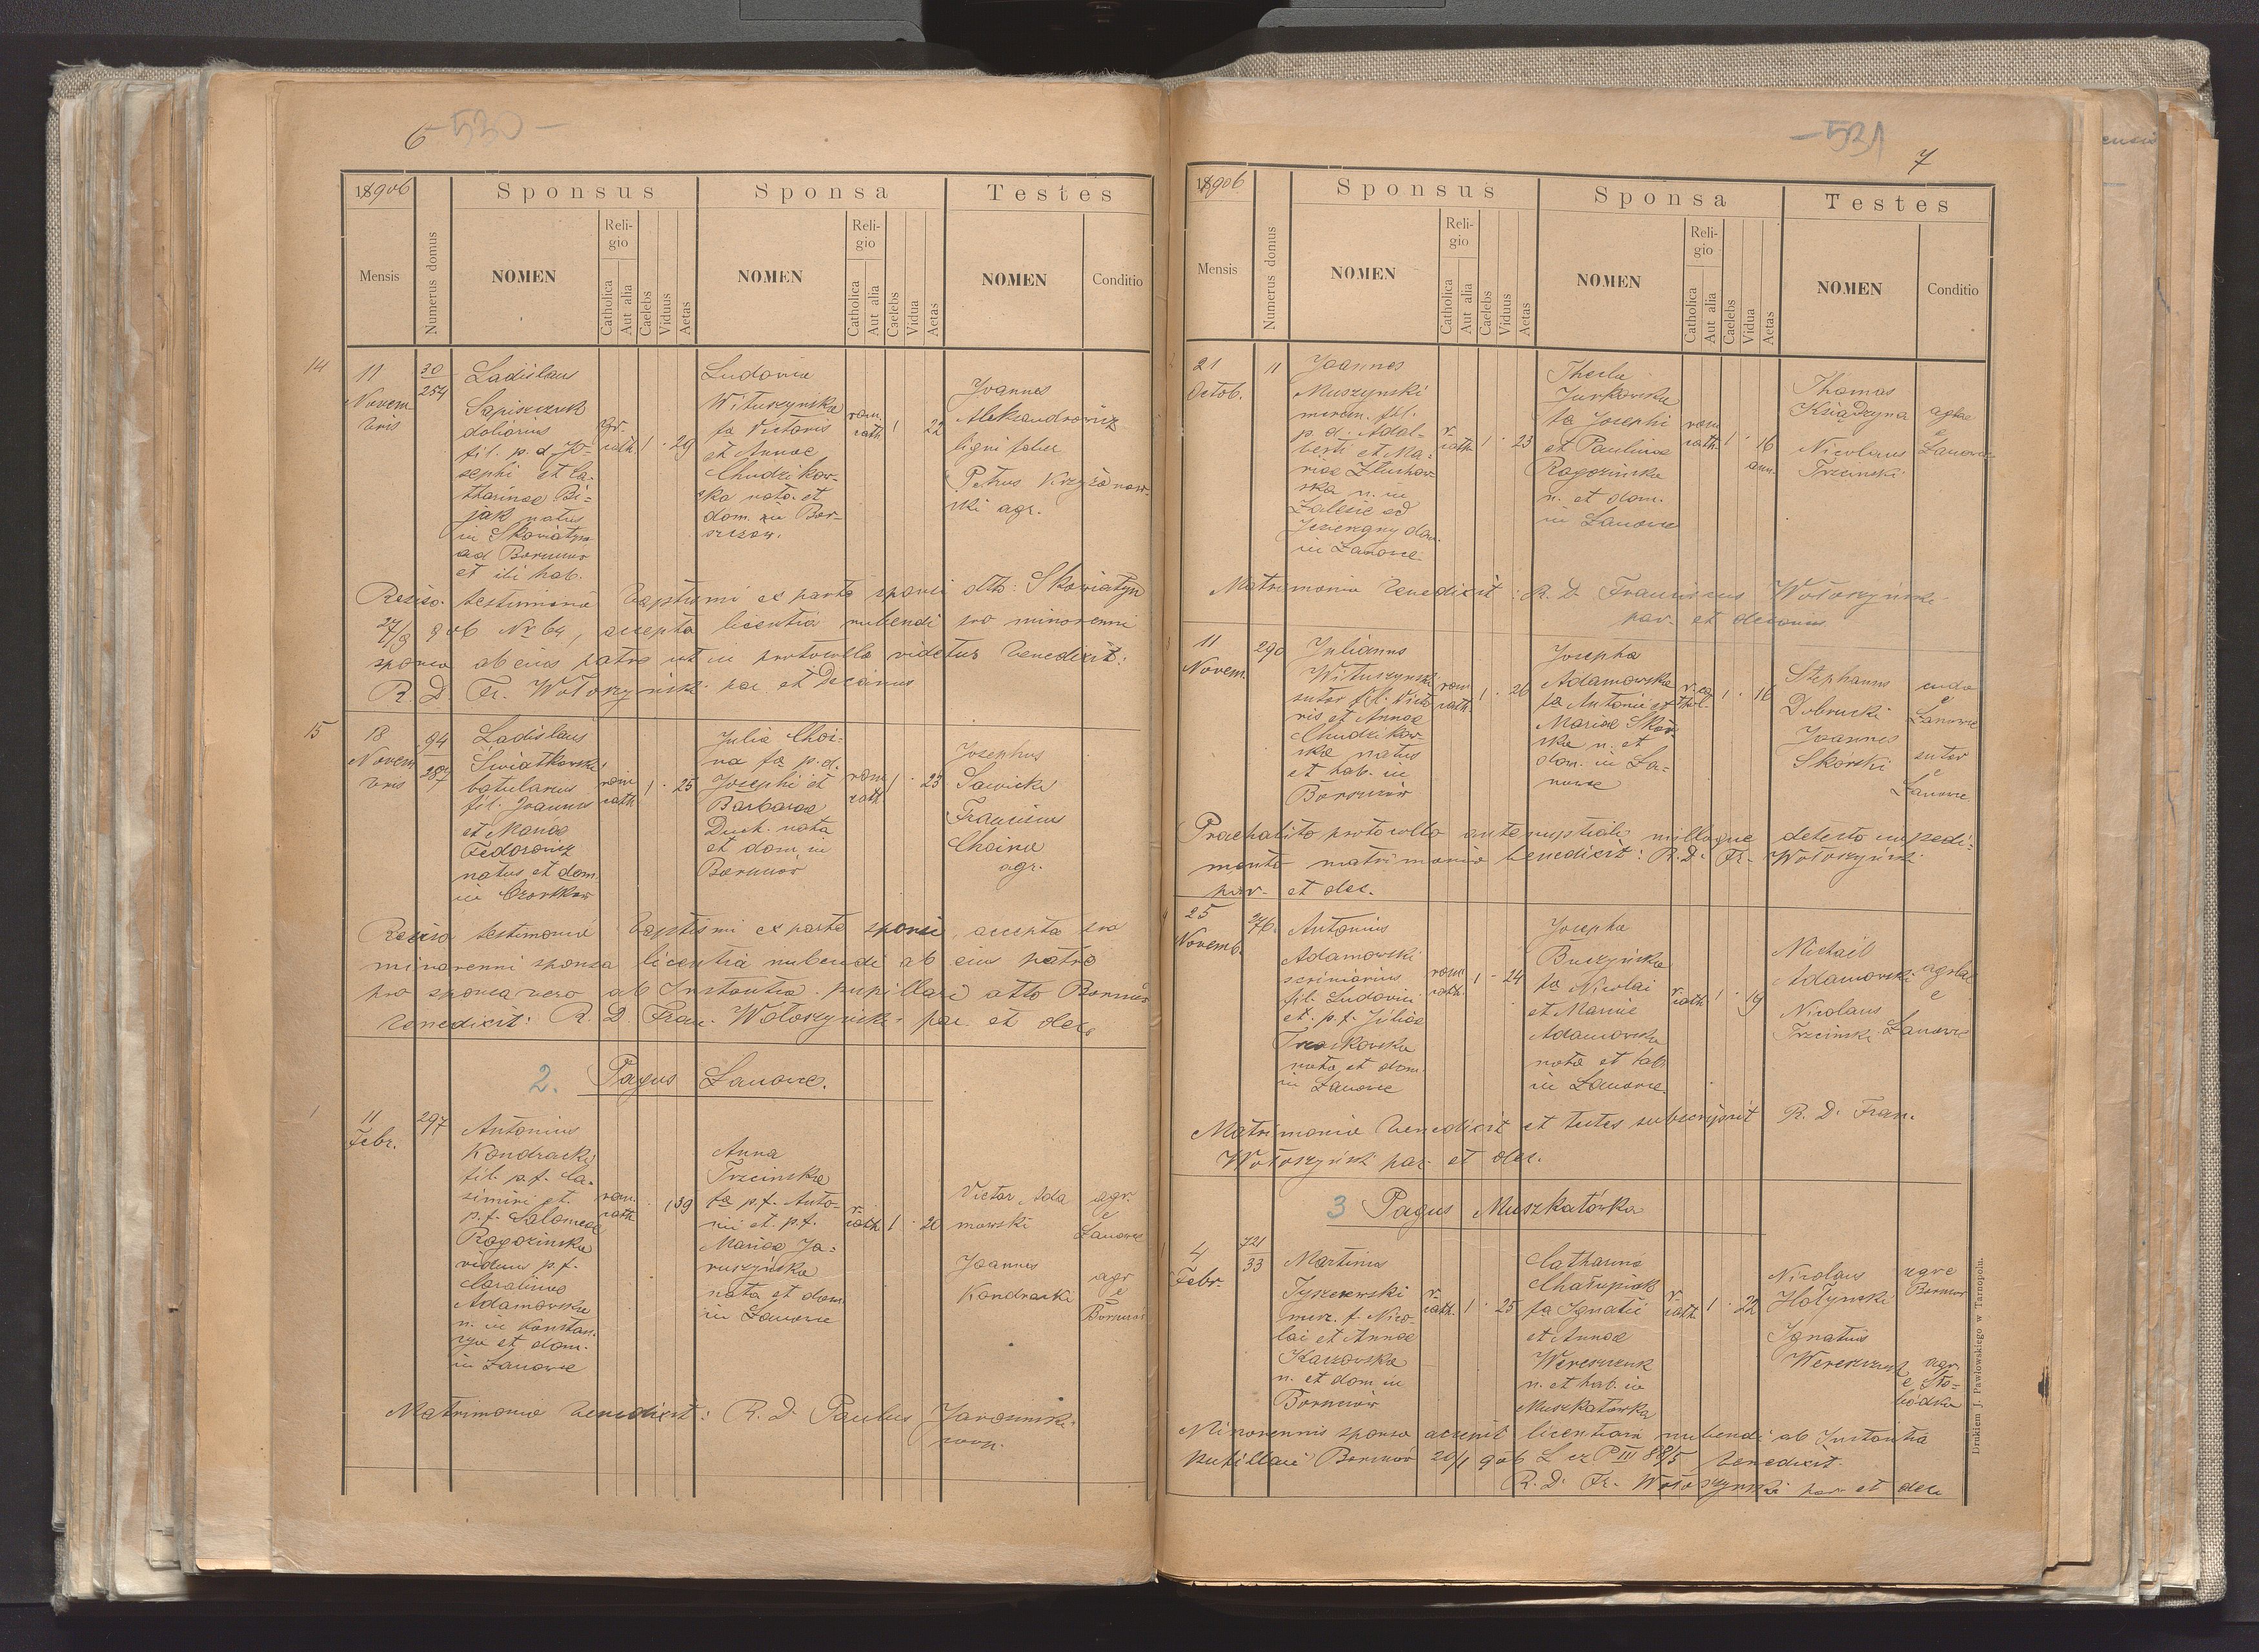 6 -530-
18906 Sponsus Sponsa Testes
Mensis Numerus domus NOMEN Religio Catholica Aut alia Caelebs Viduus Aetas NOMEN Religio Catholica Aut alia Caelebs Vidua Aetas NOMEN Conditio
14
11
Novem
bris
30
254
Ladislaus
Sapiszczuk
doliarius
fil. p. d. Jo-
sephi et Ca-
tharinae Bi=
jak natus
in Skowiatyn
ad Borszczów
et ibi hab.
gr.
cath. 1 · 29
Ludovica
Wituszynska
fa Victoris
et Annae
Chudzikow-
ska nata et
dom. in Bor-
szczow.
rom.
cath. 1 22
Joannes
Aleksandrowicz
ligni faber
Petrus Krzyżanow-
ski agr.
testimonio baptismi ex parte sponsi dtto: Skowiatyn
27/8 906 Nr 64, accepta licentia nubendi pro minorenni
sponsa ab eius patre ut in protocollo videtur benedixit:
R. D. Fr. Wołoszyński par. et Decanus
15
18
Novem
bris
94
287
Ladislaus
Swiatkowski
fil. Joannis
et Mariae
Fedorowicz
natus et dom.
in Czortkow
rom.
cath. 1 · 25
Julia Choi-
na fa p. d.
Josephi et
Barbarae
Duch. nata
et dom. in
Borszczów
rom.
cath. 1 · 23
Josephus
Sawicki
Franciscus
Choina
agr.
testimonio baptismi ex parte sponsi, accepta pro
minorenni sponsa licentia nubendi ab eius patre
pro sponsa vero ab Instantia pupillari dtto Borszczów
benedixit: R. D. Fran. Wołoszyński par. et dec.
2. Pagus Łanowce.
1
11
Febr.
297
Antonius
Kondracki
fil. p. f. Ca-
simiri et
p. f. Salomeae
Ragozinska
viduus p. f.
Carolinae
Adamowska
n. in Konstan-
cya et dom.
in Łanowce
rom.
cath. · 1 39
Anna
Trzcinska
fa p. f. Anto-
nii et p. f.
Mariae Ja-
ruszyńska
nata et dom.
in Łanowce
r.
cath. 1 · 20
Victor Ada
mowski
agr.
e
Łanowce
Joannes
Kondracki
agr
e
Borszczów
Matrimonio benedixit: R. D. Paulus Jarosinski
coop.
-531 7
18906 Sponsus Sponsa Testes
Mensis Numerus domus NOMEN Religio Catholica Aut alia Caelebs Viduus Aetas NOMEN Religio Catholica Aut alia Caelebs Vidua Aetas NOMEN Conditio
2
21
Octob.
11
Joannes
Muszynski
mercen. fil.
p. d. Adal-
berti et Ma-
riae Zluchow-
ska n. in
Zalesie ad
Jezierzany dom.
in Łanowce
r.
cath. 1 · 23
Thecla
Jurkowska
fa Josephi
et Paulinae
Ragozinska
n. et dom.
in Łanowce
rom
cath. 1 · 16
ann.
Thomas
Książdzyna
Nicolaus
Trzcinski
agrae
e
Łanowce
Matrimonio benedixit: R. D. Franciscus Wołoszyński
par. et decanus
3
11
Novem.
290
Julianus
Wituszynski
sutor fil. Victo
ris et Annae
Chudzikow-
ska natus
et hab. in
Borszczów
rom
cath. 1 · 26
Josepha
Adamowska
fa Antonii et
Mariae Skor
ska n. et
dom. in Ła-
nowce
r. ca
thol. 1 · 16
Stephanus
Dobrucki
Joannes
Skorski
e
Łanowce
sutor
e
Łanowce
Praehabito protocollo antenuptiali nulloque detecto impedi-
mento matrimonio benedixit: R. D. Fr. Wołoszyński
par. et dec.
4
25
Novemb.
276.
Antonius
Adamowski
scriniarius
fil. Ludovici
et p. f. Juliae
Traskowska
nata et dom.
in Łanowce
rom
cath. 1 · 24
Josepha
Buczyńska
fa Nicolai
et Mariae
Adamowska
nata et hab
in Łanowce
r.
cath. 1 · 19
Michael
Adamowski
Nicolaus
Trzcinski
agrae
e
Łanowce
Matrimonio benedixit et testes subscripsit R. D. Fran.
Wołoszyński par. et dec.
3 Pagus Muszkatówka
1
4
Febr.
721
33
Martinus
Tyszewski
merc. f. Nico-
lai et Annae
Karzowska
n. et dom in
Borszczów
r.
cath. 1 · 25
Catharina
Chałupiak
fa Ignatii
et Annae
Wereszczuk
n. et hab. in
Muszkatówka
r.
cath. 1 · 22
Nicolaus
Hołynski
Ignatius
Wereszczuk
agr e
Borszczów
agr.
e Sło-
bódka
Minorennis sponsa accepit licentiam nubendi ab Instantia
pupillari Borszczów 20/1 906 L cz P III 88/5 benedixit
R. D. Fr. Wołoszyński par. et dec.
Drukiem J. Pawłowskiego w Tarnopolu.